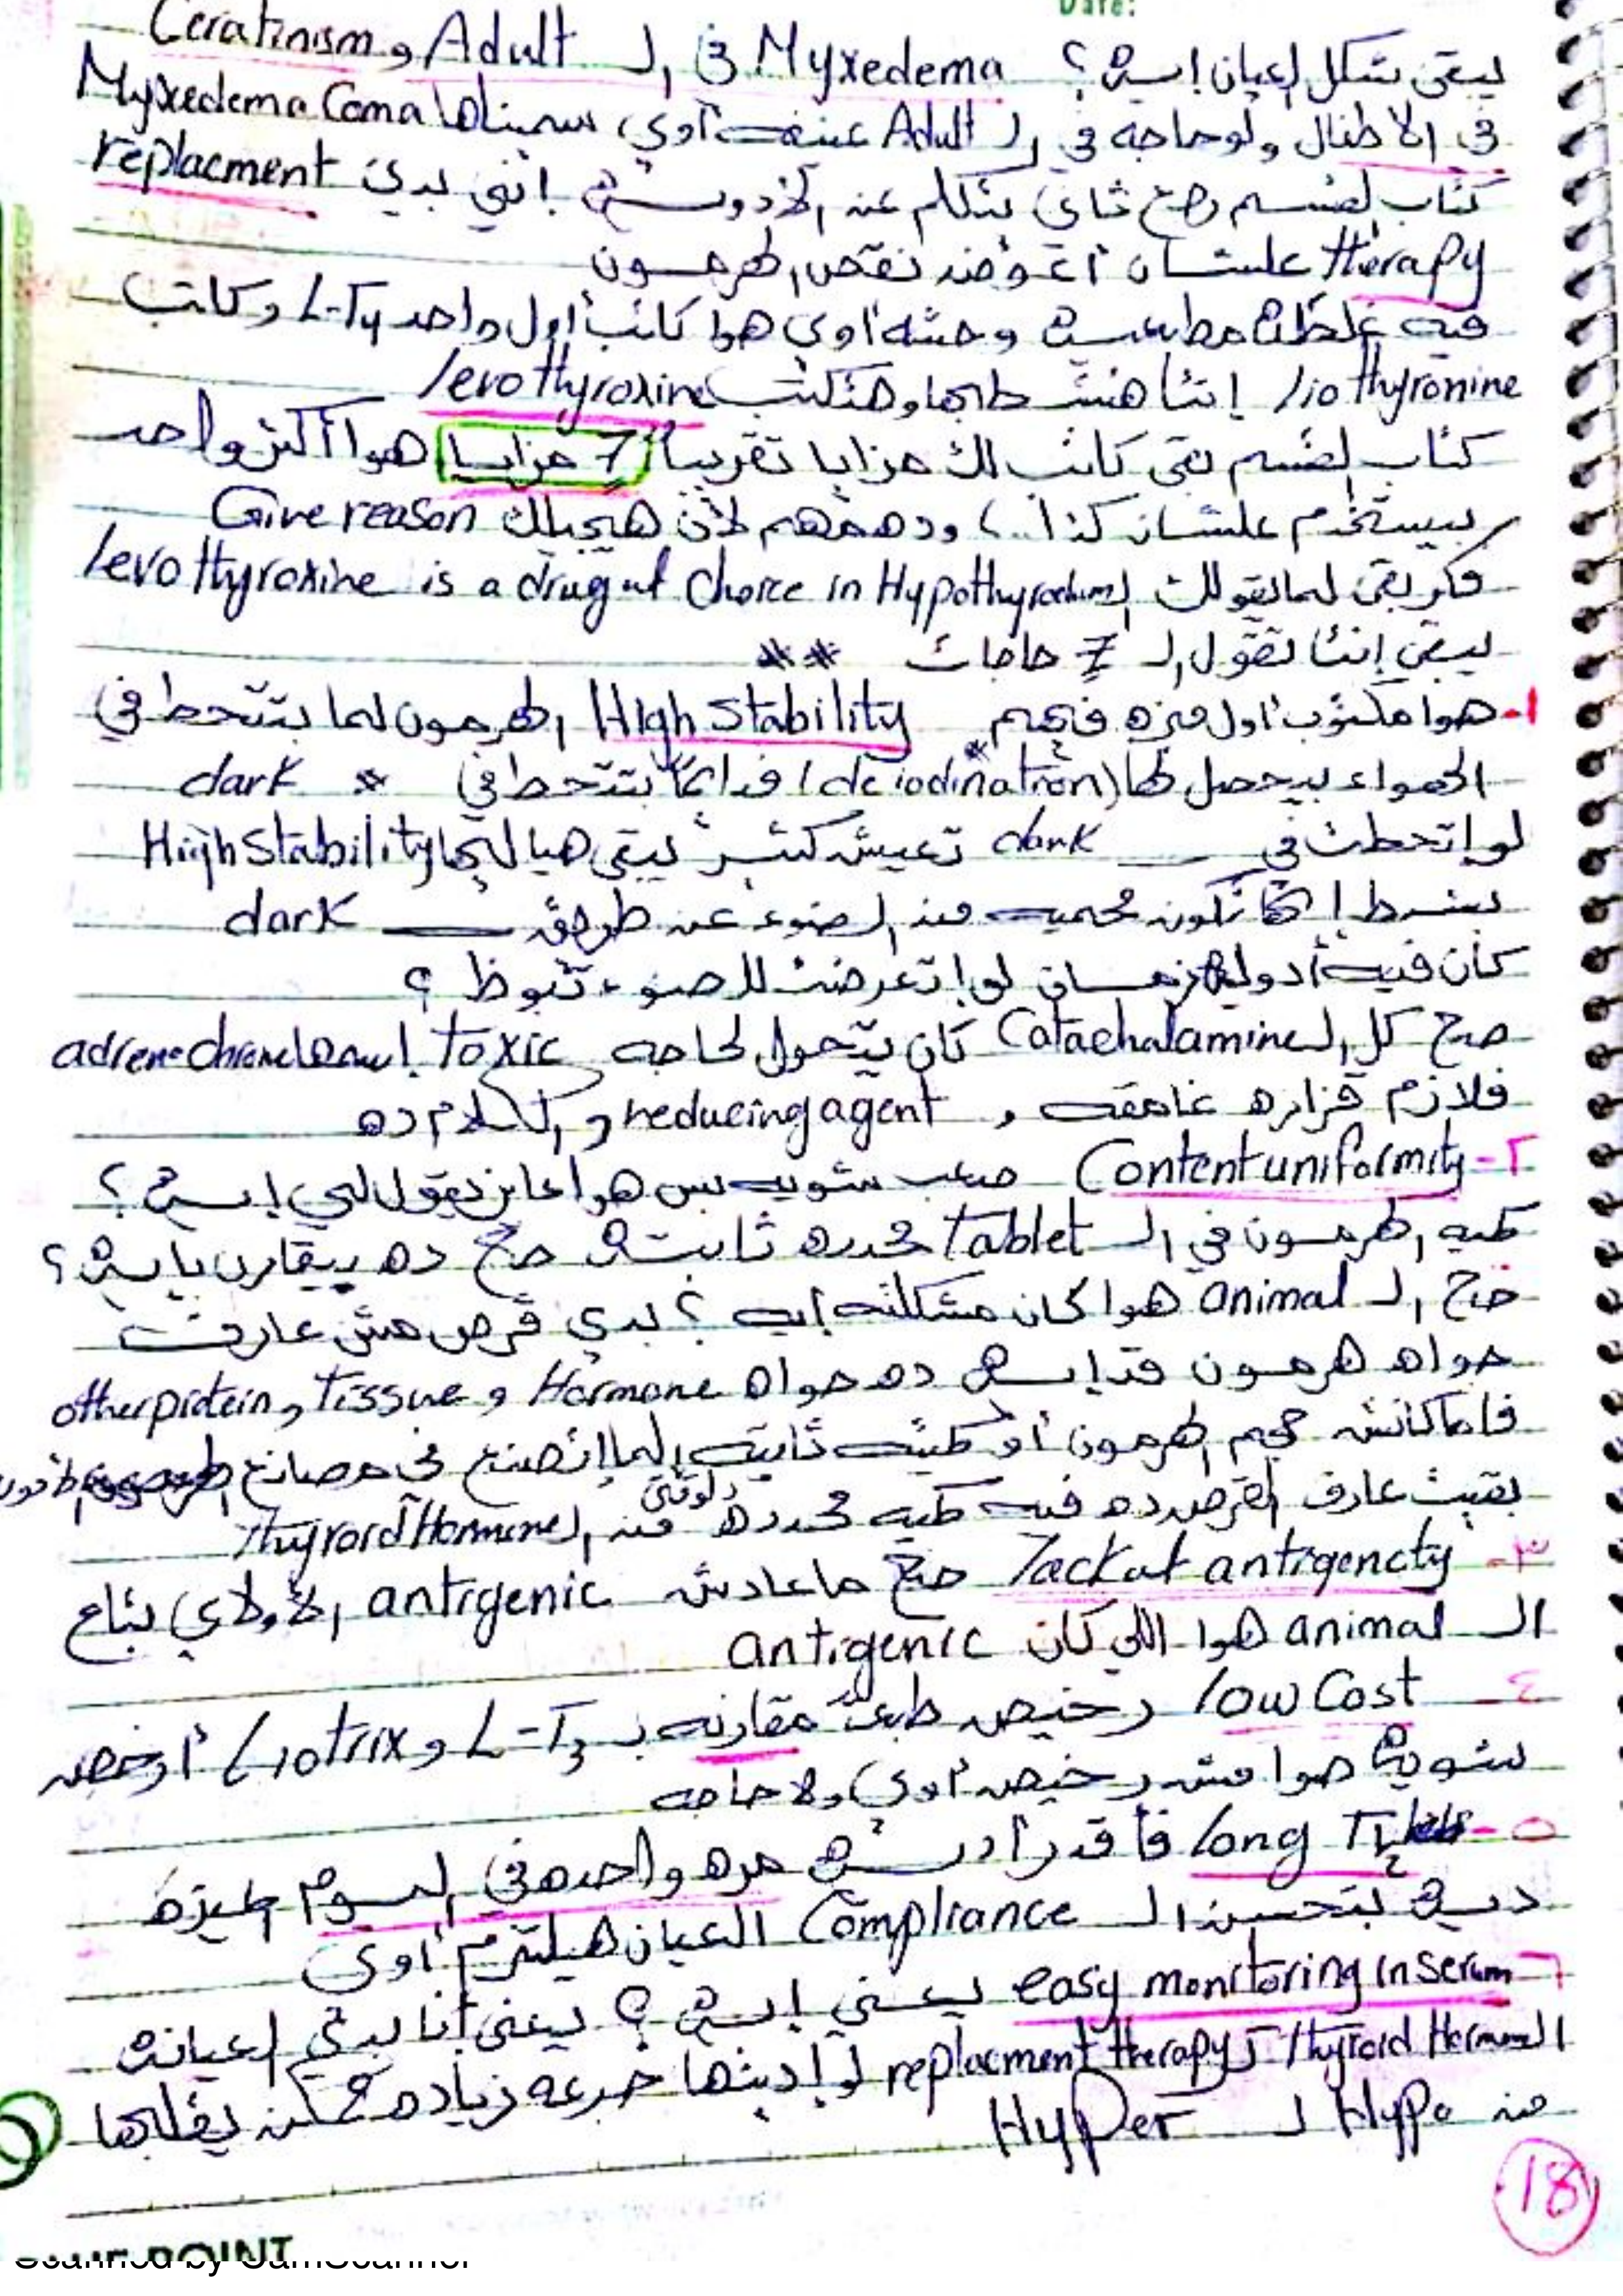 Date:
يبقى شكل العيان إيه؟ Myxedema في الـ Adult و Ceratinism
في الأطفال ولو حاجه في الـ Adult عنيفه أوي سميناها Myxedema Coma
كتاب القسم رجع تاني بتكلم عن الأدويه إنني بدي replacment
therapy علشان أعوض نقص الهرمون
فيه غلطه مطبعيه وحشه أوي هوا كاتب أول واحد L-T4 وكاتب
liothyronine إنتا هتشطبها وهتكتب levothyroxine
كتاب القسم بقى كاتب لك مزايا تقريباً 7 مزايا هوا أكتر واحد
بيستخدم علشان كذا.. ودهمهم لأن هيجيلك Give reason
فكر بقى لما يقولك levothyroxine is a drug of choice in Hypothyrodism
يبقى إنتا تقول الـ 7 حاجات **
١- هوا مكتوب أول ميزه فيهم High stability الهرمون لما بتتحط في
الهواء بيحصل لها (deiodination) فدايماً بتتحط في * dark
لو إتحطت في dark تعيش كتير يبقى هيا ليها High stability
بشرط إنها تكون محميه من الضوء عن طريق dark
كان فيه أدويه زمان لو إتعرضت للضوء تبوظ ؟
صح كل الـ Catachalamine كان يتحول لحاجه toxic إسمها adrenochrome
فلازم قزازه غامقه و reducing agent والكلام ده
٢- Content uniformity صعب شويه بس هوا عايز يقول لي إيه ؟
كميه الهرمون في الـ Tablet محدده ثابته صح ده بيقارن بإيه ؟
صح الـ animal هوا كان مشكلته إيه ؟ بدي قرص مش عارف
جواه هرمون قد إيه ده جواه Hormone و Tissue و other protein
فما كانش حجم الهرمون أو كميته ثابته لما إتصنع في مصانع
بقيت عارف القرص ده فيه كميه محدده دلوقتي من الـ Thyroid Hormone
٣- lack of antigencty صح ماعادش antigenic الأولاني بتاع
الـ animal هوا اللي كان antigenic
٤- low Cost رخيص طبعاً مقارنه بـ L-T3 و Liotrix أرخص
شويه هوا مش رخيص أوي ولا حاجه
٥- long T½ فأقدر أديه مره واحده في اليوم الميزه
ديه بتحسن الـ Compliance العيان هيلتزم أوي
٦- easy monitoring in serum يعني إيه ؟ يعني أنا بدي العيانه
الـ Thyroid Hormone كـ replacment therapy لو إديتها جرعه زياده ممكن يقلبها
من Hypo لـ Hyper
18
Scanned by CamScanner